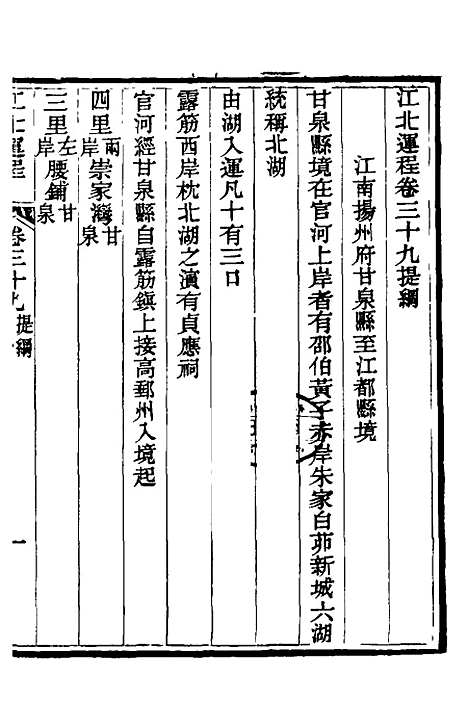 江北運程卷三十九提綱
江南揚州府甘泉縣至江都縣境
甘泉縣境在官河上岸者有邵伯黃子赤岸朱家白茆新城六湖
統稱北湖
由湖入運凡十有三口
露筋西岸枕北湖之濱有貞應祠
官河經甘泉縣自露筋鎭上接高郵州入境起
四里兩岸崇家灣甘泉
三里左岸腰鋪甘泉
江北運程 卷三十九 提綱 一